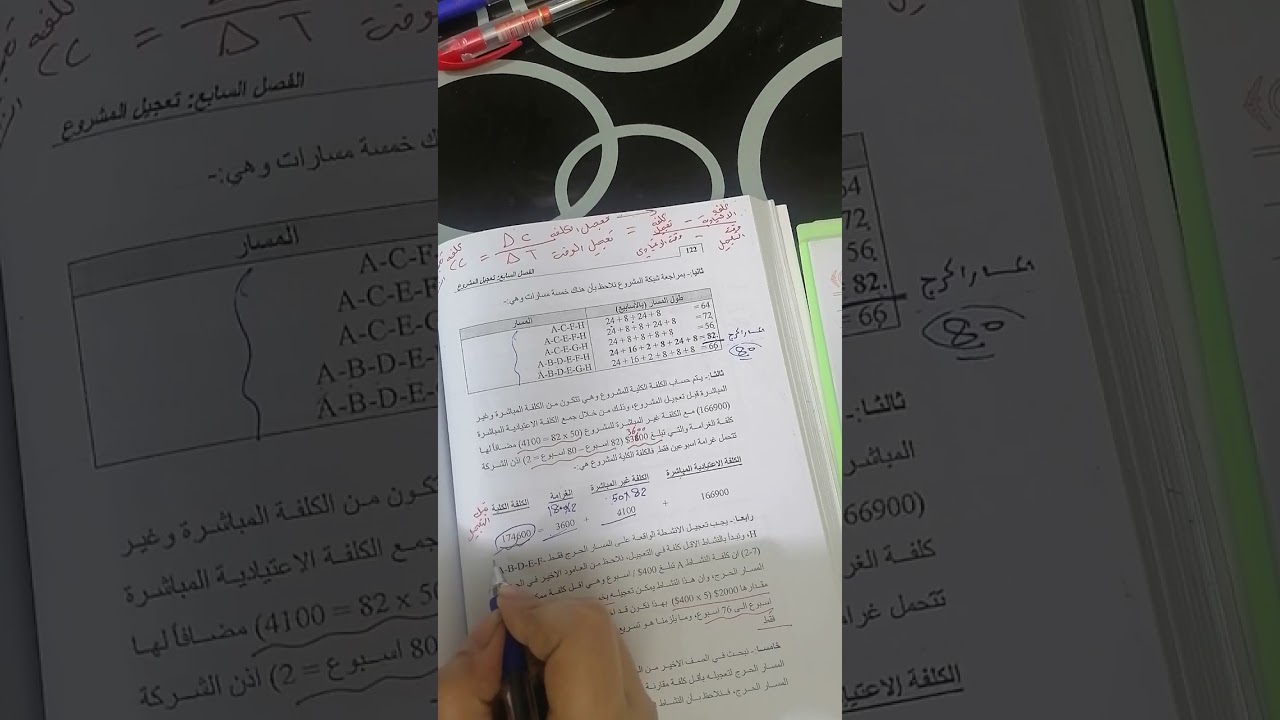 معدل الكلفة = ΔC / ΔT = كلفة تعجيل - كلفة الاعتيادية
تعجيل الوقت
وقت الاعتيادي - وقت التعجيل
CC =
122
الفصل السابع: تعجيل المشروع
ثانيا:- بمراجعة شبكة المشروع نلاحظ بأن هناك خمسة مسارات وهي:-
المسار طول المسار (بالأسابيع)
A-C-F-H 24 + 8 + 24 + 8 = 64
A-C-E-F-H 24 + 8 + 8 + 24 + 8 = 72
A-C-E-G-H 24 + 8 + 8 + 8 + 8 = 56
A-B-D-E-F-H 24 + 16 + 2 + 8 + 24 + 8 = 82
A-B-D-E-G-H 24 + 16 + 2 + 8 + 8 + 8 = 66
المسار الحرج
80
ثالثا:- يتم حساب الكلفة الكلية للمشروع وهي تتكون من الكلفة المباشرة وغير
المباشرة قبل تعجيل المشروع، وذلك من خلال جمع الكلفة الاعتيادية المباشرة
(166900) مع الكلفة غير المباشرة للمشروع (50 x 82 = 4100) مضافاً لها
3600
كلفة الغرامة والتي تبلغ (82 اسبوع – 80 اسبوع = 2) اذن الشركة
تتحمل غرامة اسبوعين فقط، فالكلفة الكلية للمشروع هي:-
الكلفة الاعتيادية المباشرة الكلفة غير المباشرة الغرامة الكلفة الكلية
قبل التعجيل
50x82 1800x2
166900 + 4100 + 3600 = 174600
رابعا:- يجب تعجيل الانشطة الواقعة على المسار الحرج فقط A-B-D-E-F-
H، ونبدأ بالنشاط الاقل كلفة في التعجيل، نلاحظ من العامود الاخير في
(7-2) ان كلفة النشاط A تبلغ 400$ / اسبوع وهي اقل كلفة
المسار الحرج، وان هذا النشاط يمكن تعجيله
مقدارها 2000$ (5 x 400$) بهذا نكون قد
اسبوع الى 76 اسبوع، وما يلزمنا هو تسريع
فقط
خامسا:- نبحث في الصف الاخير من
المسار الحرج لتعجيله بأقل كلفة مقارنة
المسار الحرج، فنلاحظ بأن النشاط